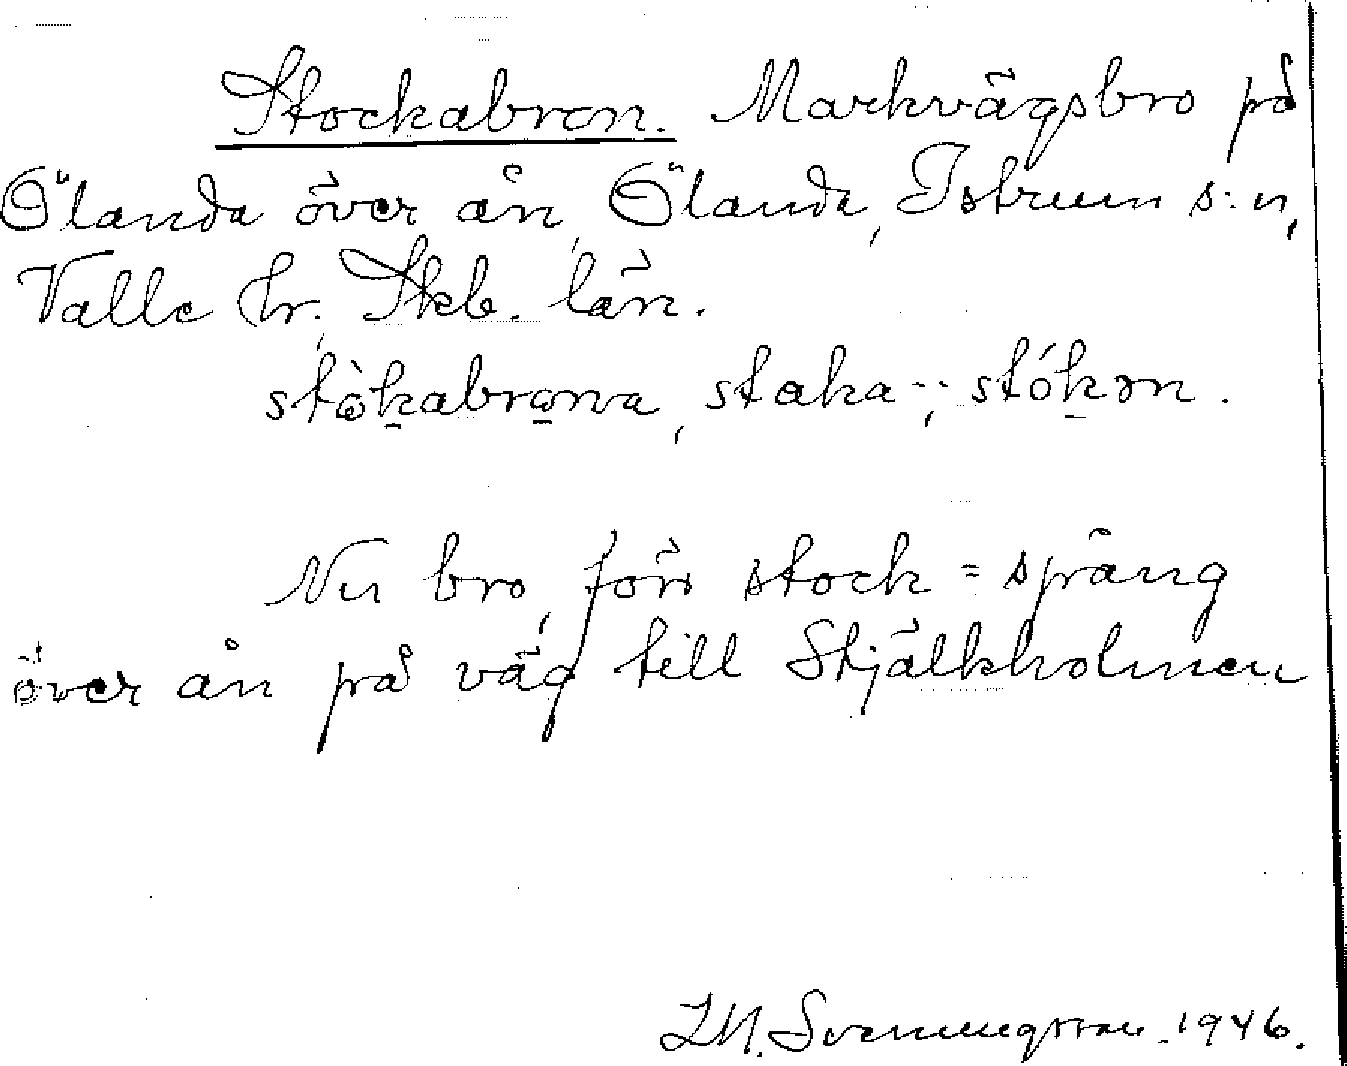 Stockabron. Markvägsbro på
Ölanda över ån, Ölanda, Istrum s:n,
Valle hr. Skb. län.
stòkabrona, staka-; stókən.
Nu bro, förr stock = spång
över ån på väg till Stjälkholmen
L.M. Svenungsson. 1946.